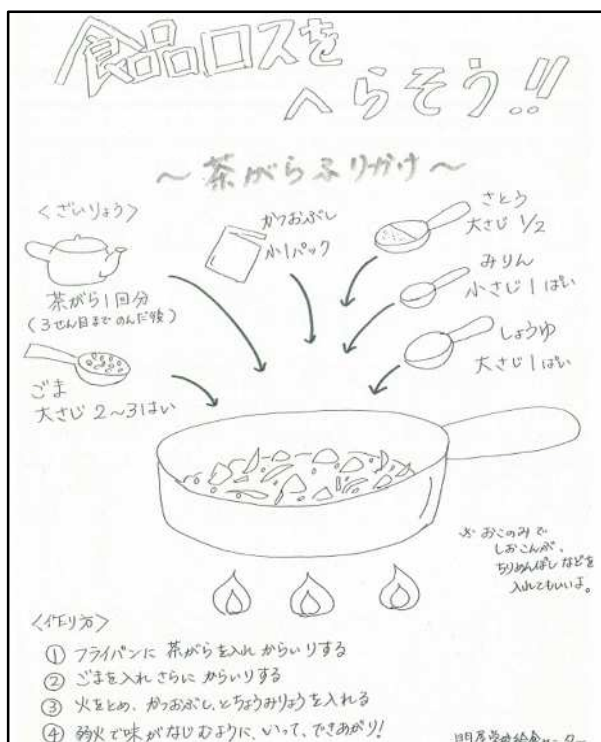 食品ロスを
へらそう!!
～茶がらふりかけ～
〈ざいりょう〉
茶がら1回分
(3せん目までのんだ後)
ごま
大さじ 2～3はい
かつおぶし
小1パック
さとう
大さじ 1/2
みりん
小さじ1ぱい
しょうゆ
大さじ1ぱい
※ おこのみで
しおこんぶ、
ちりめんぼしなどを
入れてもいいよ。
〈作り方〉
① フライパンに 茶がらを入れ からいりする
② ごまを入れ さらに からいりする
③ 火をとめ、かつおぶし、とちょうみりょうを入れる
④ 弱火で味がなじむように、いって、できあがり!